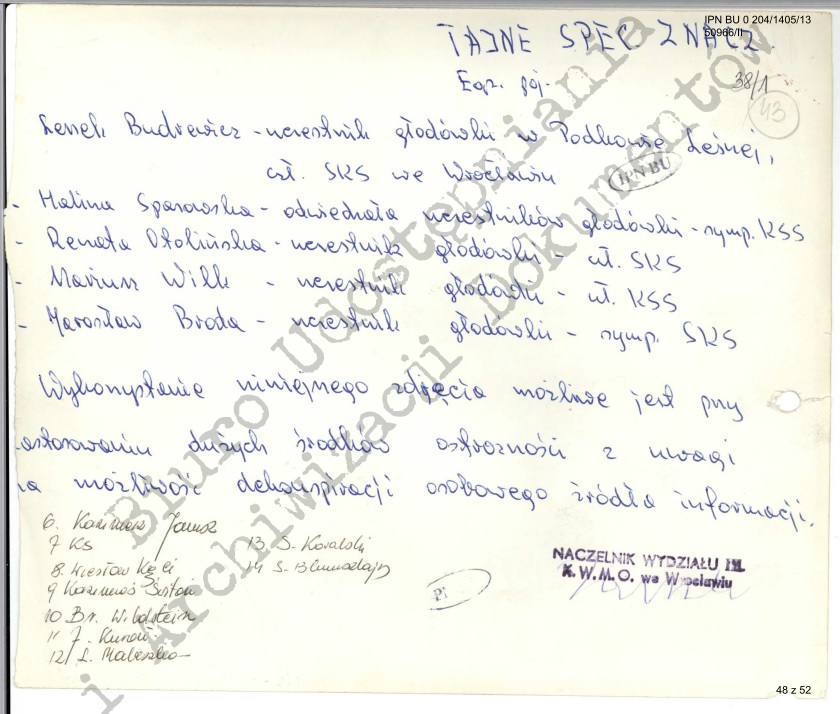 IPN BU 0 204/1405/13
50966/II
TAJNE SPEC. ZNACZ.
Egz. poj.
38/1
43
Leszek Budrewicz - uczestnik głodówki w Podkowie Leśnej,
czł. SKS we Wrocławiu
IPN BU
- Halina Sparowska - odwiedzała uczestników głodówki - symp. KSS
- Renata Otolińska - uczestnik głodówki - czł. SKS
- Mariusz Wilk - uczestnik głodówki - czł. KSS
- Jarosław Broda - uczestnik głodówki - symp. SKS
Wykorzystanie niniejszego zdjęcia możliwe jest przy
zastosowaniu dużych środków ostrożności z uwagi
na możliwość dekonspiracji osobowego źródła informacji.
6. Kazimierz Janusz
7 KS
8. Wiesław Kęci
9 Kazimierz Świtoń
10 Br. Wildstein
11 J. Kuroń
12/ L. Maleszka
13 S. Kowalski
14 S. Blumsztajn
NACZELNIK WYDZIAŁU III
K.W.M.O. we Wrocławiu
Biuro Udostępniania
i Archiwizacji Dokumentów
48 z 52